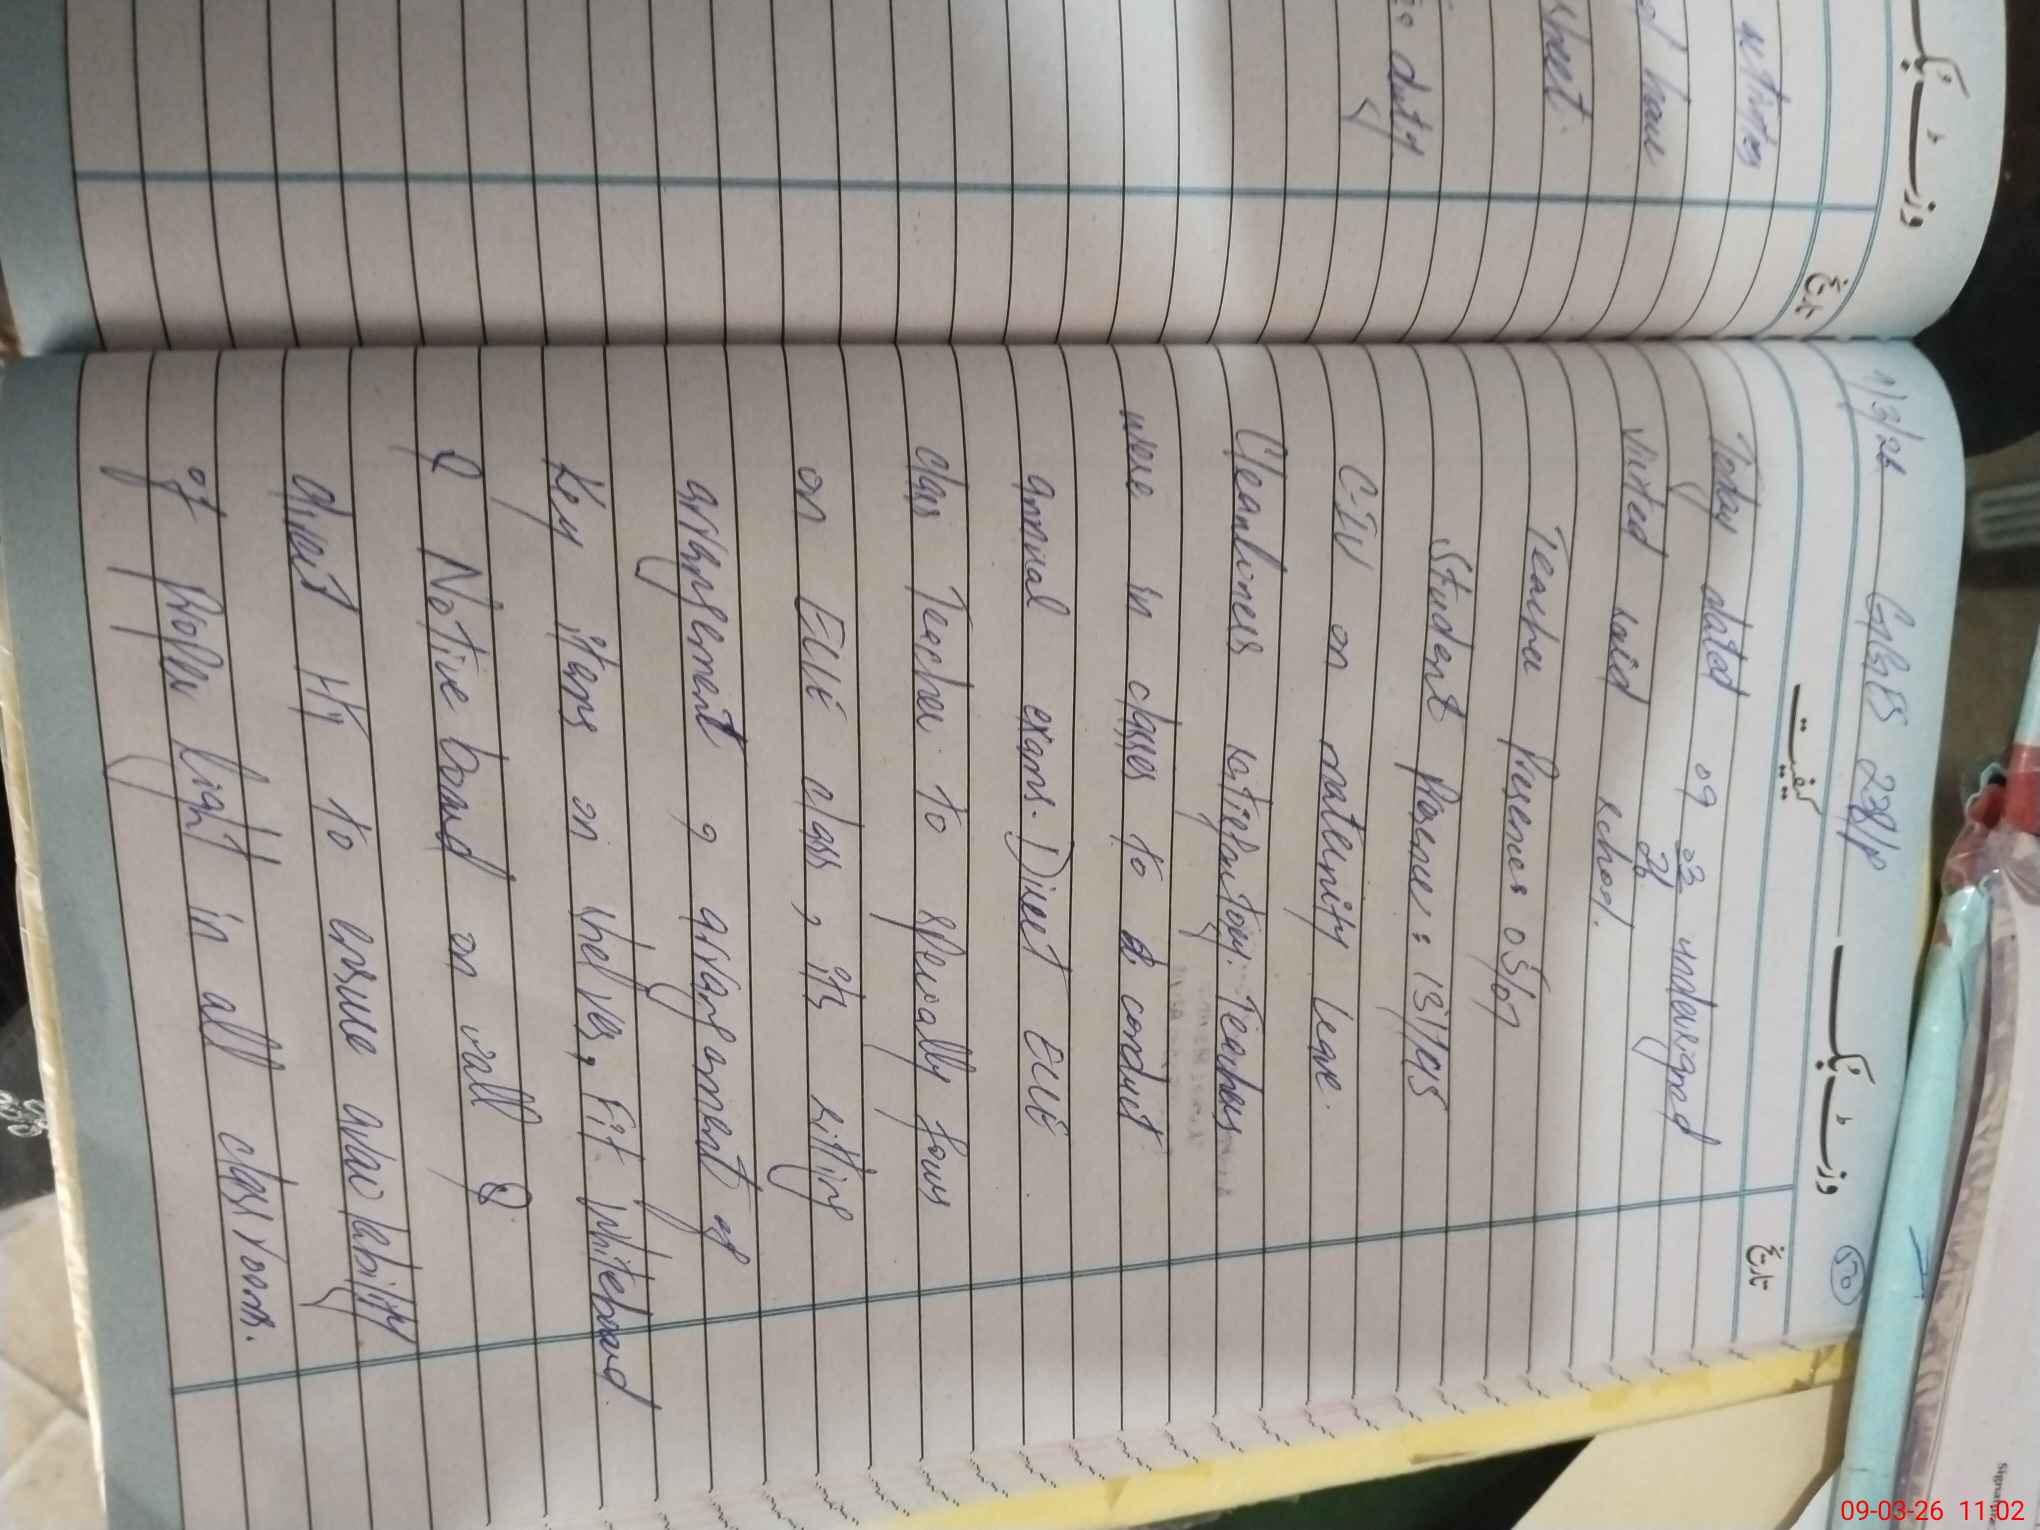 utities
d how
sheet.
duty.
وزٹ بک
تاریخ
9/3/26 GGES 238/P
وزٹ بک
50
کیفیت
تاریخ
Today dated 09 03 26 undersigned
visited said school.
Teacher Presence 05/07
Student Presence: 131/195
C-IV on maternity leave.
Cleanliness satisfactory. Teachers
were in classes to conduct
annual exams. Direct ECCE
class Teacher to specially focus
on ECCE class, its sitting
arrangement, arrangement of
Key items in shelves, Fit whiteboard
& Notice board on wall &
direct HT to ensure availability
of proper light in all classrooms.
09-03-26 11:02